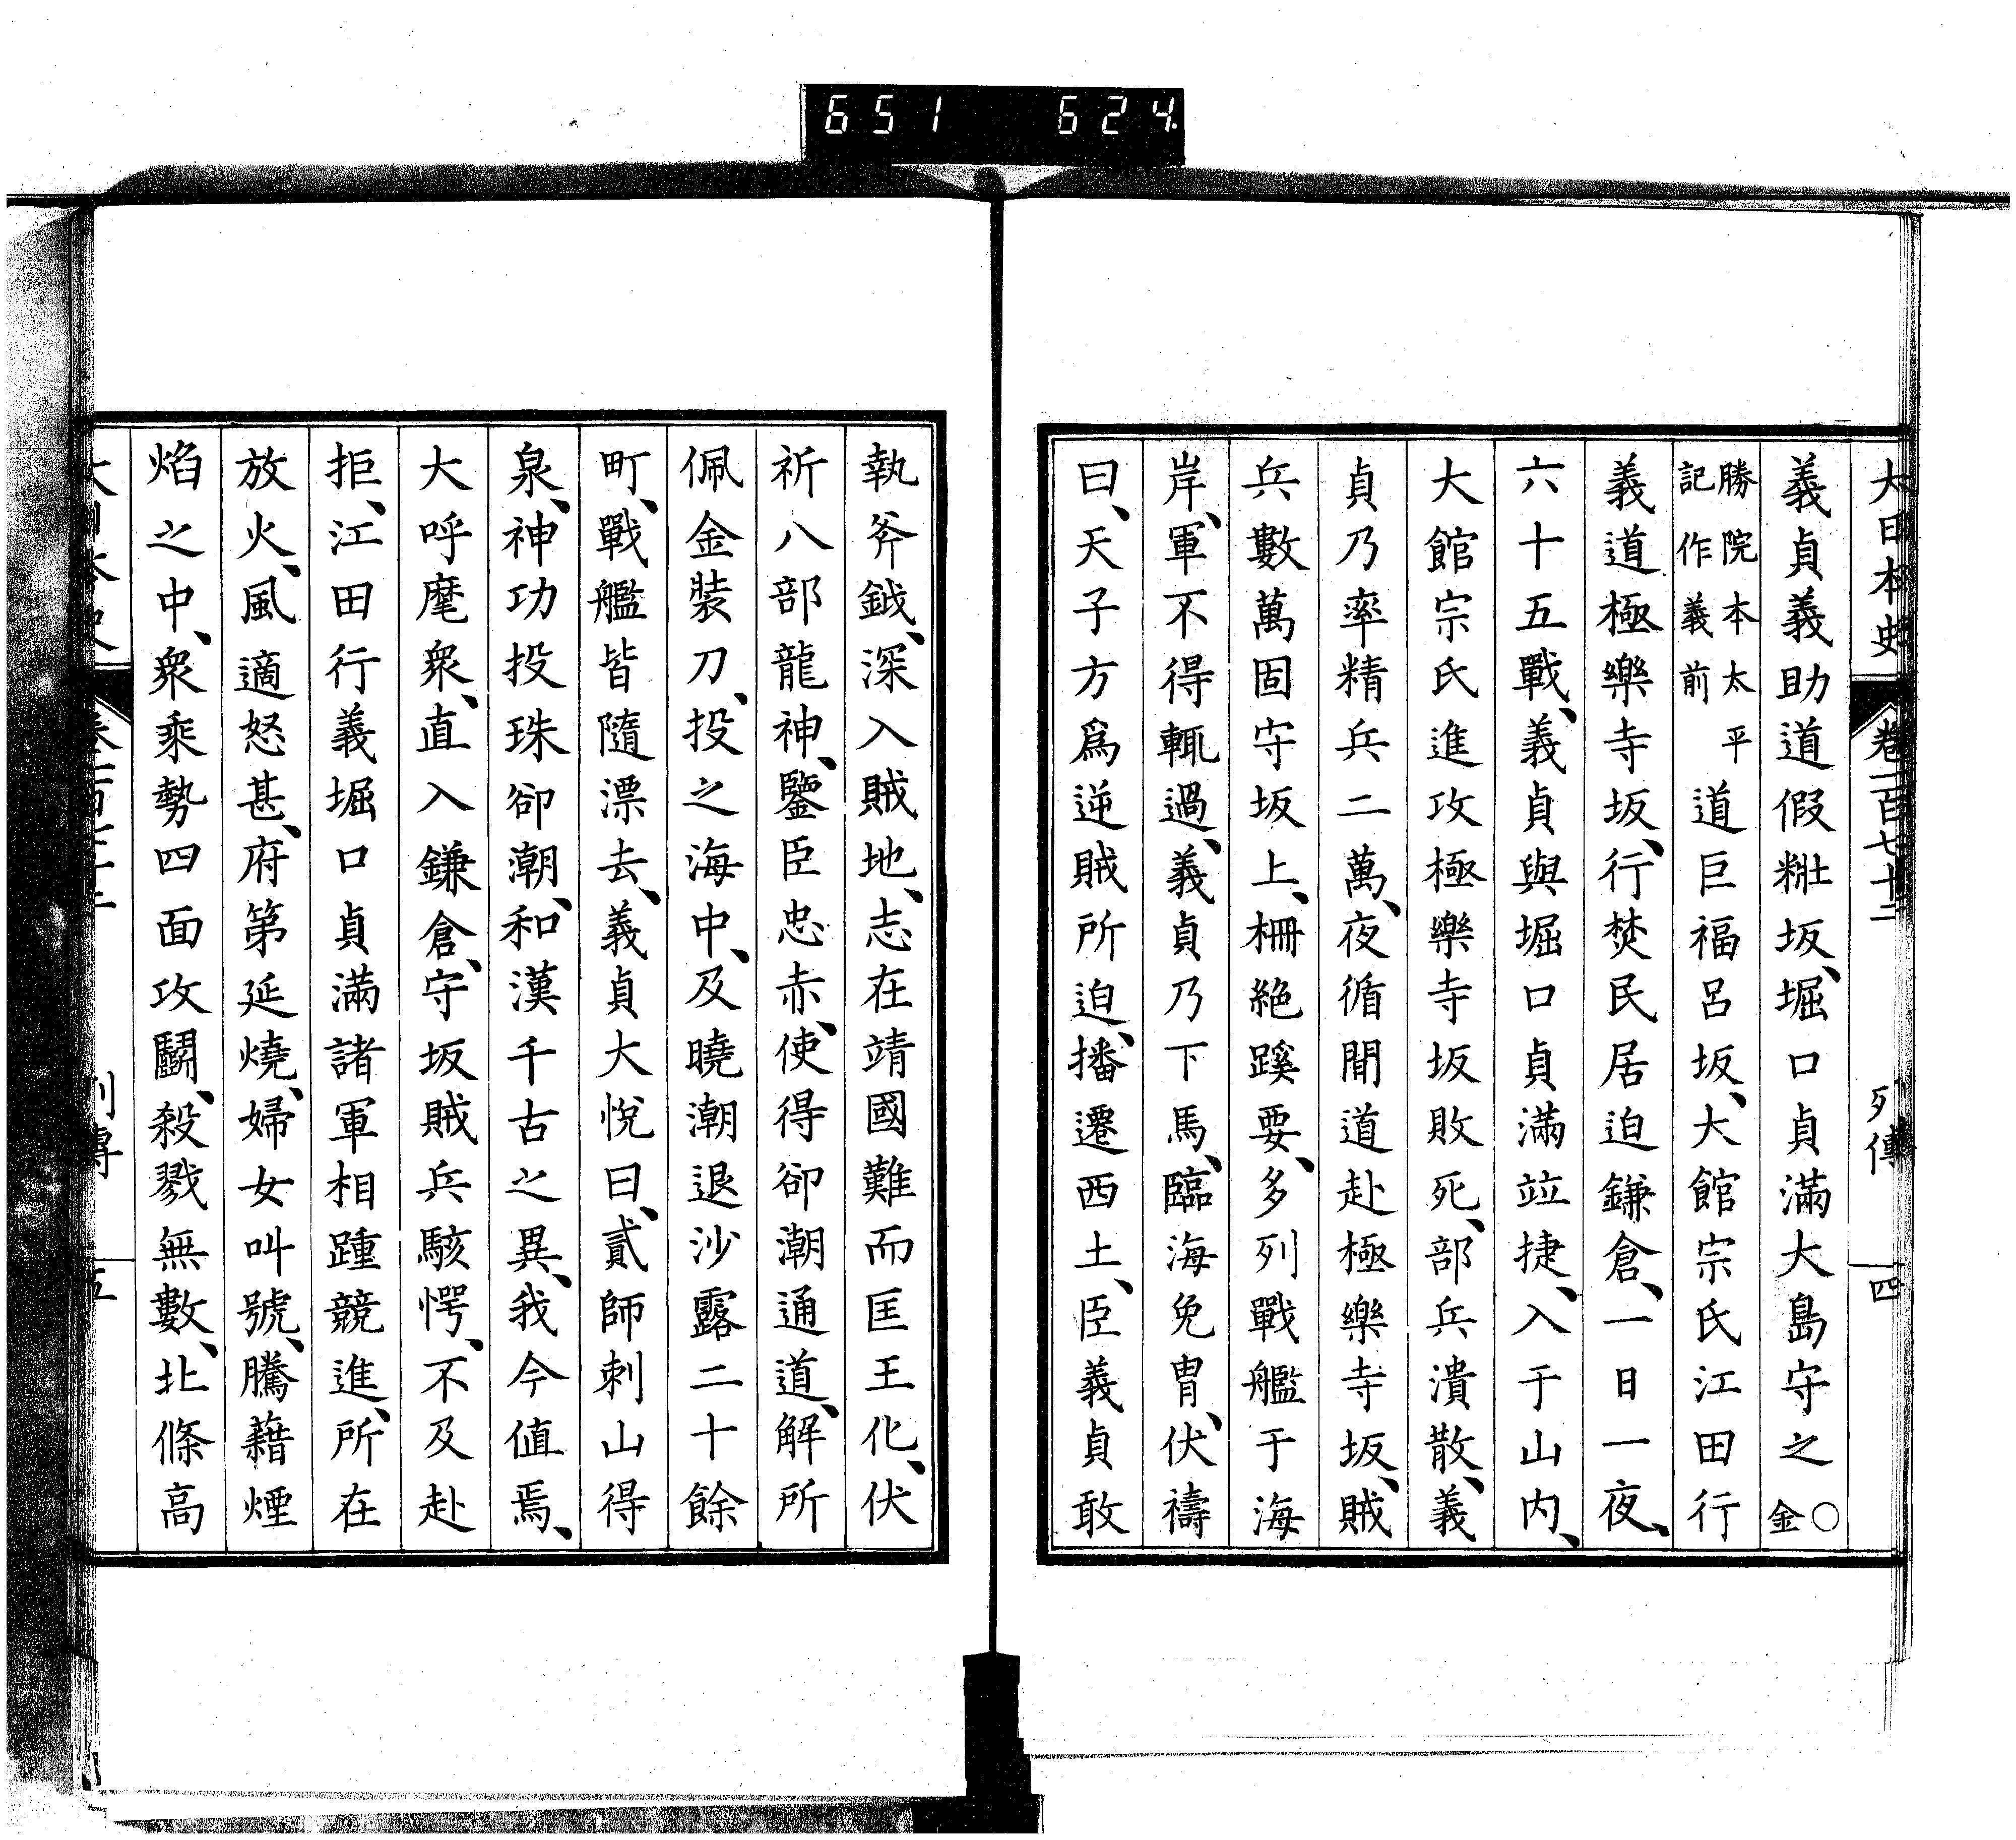 651 624
大日本史 卷一百七十二 列傳 四
義貞義助道假粧坂、堀口貞滿大島守之○金
勝院本太平記作義前道巨福呂坂、大館宗氏江田行
義道極樂寺坂、行焚民居迫鎌倉、一日一夜、
六十五戰、義貞與堀口貞滿竝捷、入于山内、
大館宗氏進攻極樂寺坂敗死、部兵潰散、義
貞乃率精兵二萬、夜循閒道赴極樂寺坂、賊
兵數萬固守坂上、柵絶蹊要、多列戰艦于海
岸、軍不得輒過、義貞乃下馬、臨海免冑、伏禱
曰、天子方爲逆賊所迫、播遷西土、臣義貞敢
執斧鉞、深入賊地、志在靖國難而匡王化、伏
祈八部龍神、鑒臣忠赤、使得卻潮通道、解所
佩金裝刀、投之海中、及曉潮退沙露二十餘
町、戰艦皆隨漂去、義貞大悅曰、貳師刺山得
泉、神功投珠卻潮、和漢千古之異、我今値焉、
大呼麾衆、直入鎌倉、守坂賊兵駭愕、不及赴
拒、江田行義堀口貞滿諸軍相踵競進、所在
放火、風適怒甚、府第延燒、婦女叫號、騰藉煙
焰之中、衆乘勢四面攻鬭、殺戮無數、北條高